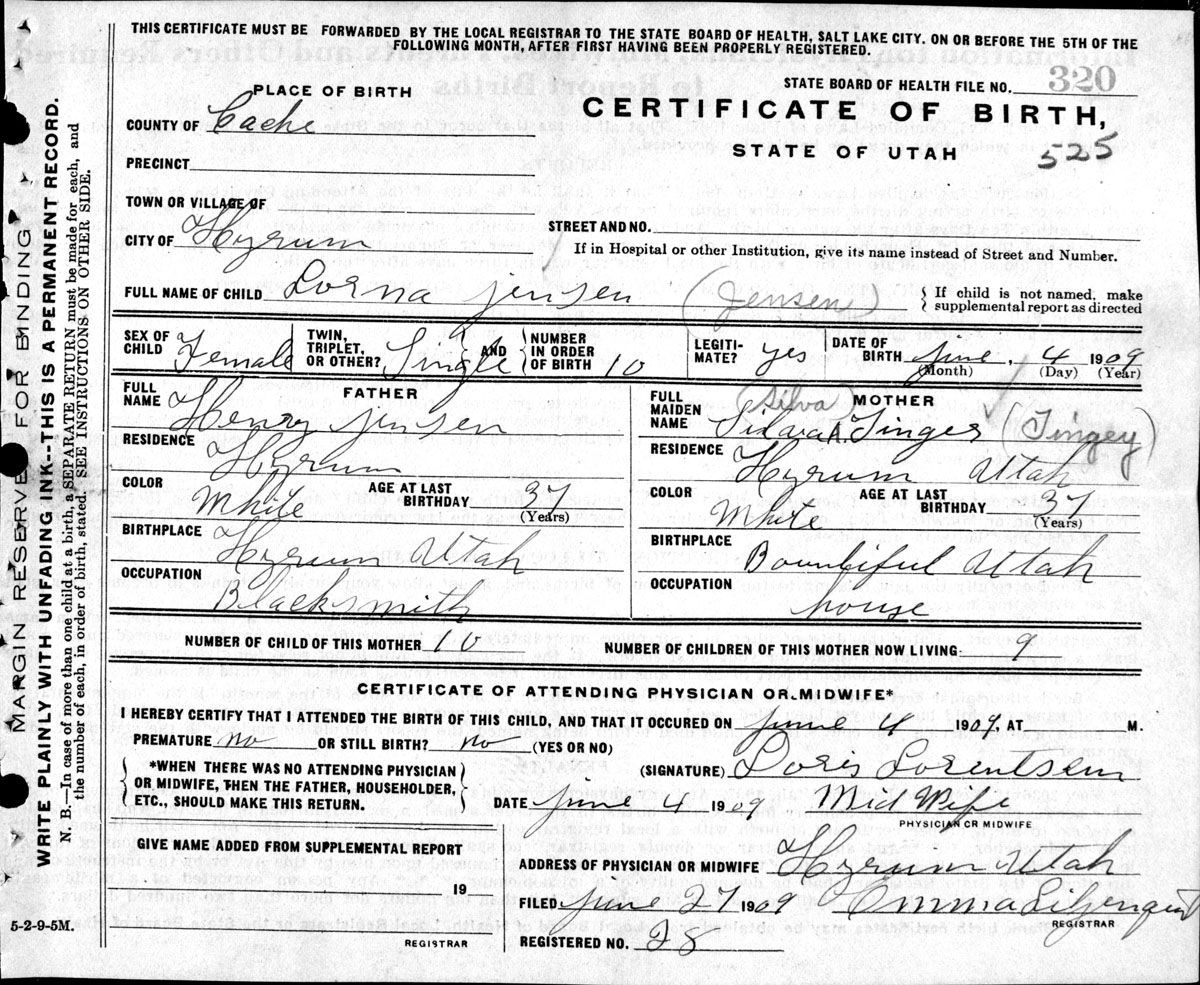 THIS CERTIFICATE MUST BE FORWARDED BY THE LOCAL REGISTRAR TO THE STATE BOARD OF HEALTH, SALT LAKE CITY. ON OR BEFORE THE 5TH OF THE
FOLLOWING MONTH, AFTER FIRST HAVING BEEN PROPERLY REGISTERED.
STATE BOARD OF HEALTH FILE NO. 320
PLACE OF BIRTH
CERTIFICATE OF BIRTH,
COUNTY OF Cache
STATE OF UTAH 525
PRECINCT
TOWN OR VILLAGE OF
STREET AND NO.
CITY OF Hyrum
If in Hospital or other Institution, give its name instead of Street and Number.
FULL NAME OF CHILD Lorna jensen (Jensen) { If child is not named, make
supplemental report as directed
SEX OF CHILD Female TWIN, TRIPLET, OR OTHER? Single AND NUMBER IN ORDER OF BIRTH 10 LEGITI-MATE? yes DATE OF BIRTH june, 4 1909
(Month) (Day) (Year)
FATHER
FULL NAME Henry jensen
RESIDENCE Hyrum
COLOR White AGE AT LAST BIRTHDAY 37
(Years)
BIRTHPLACE Hyrum Utah
OCCUPATION Blacksmith
(Silva) MOTHER
FULL MAIDEN NAME A. Singes (Tingey)
RESIDENCE Hyrum Utah
COLOR White AGE AT LAST BIRTHDAY 37
(Years)
BIRTHPLACE Bountiful Utah
OCCUPATION house
NUMBER OF CHILD OF THIS MOTHER 10 NUMBER OF CHILDREN OF THIS MOTHER NOW LIVING 9
CERTIFICATE OF ATTENDING PHYSICIAN OR MIDWIFE*
I HEREBY CERTIFY THAT I ATTENDED THE BIRTH OF THIS CHILD, AND THAT IT OCCURED ON june 4 1909, AT M.
PREMATURE no OR STILL BIRTH? no (YES OR NO)
{ *WHEN THERE WAS NO ATTENDING PHYSICIAN
OR MIDWIFE, THEN THE FATHER, HOUSEHOLDER,
ETC., SHOULD MAKE THIS RETURN. }
(SIGNATURE) Doris Lorentsen
DATE june 4 1909 Mid Wife
PHYSICIAN OR MIDWIFE
GIVE NAME ADDED FROM SUPPLEMENTAL REPORT
19
REGISTRAR
ADDRESS OF PHYSICIAN OR MIDWIFE Hyrum Utah
FILED june 27 1909 Emma
REGISTRAR
REGISTERED NO. 28
5-2-9-5M.
MARGIN RESERVE FOR BINDING
WRITE PLAINLY WITH UNFADING INK--THIS IS A PERMANENT RECORD.
N. B.—In case of more than one child at a birth, a SEPARATE RETURN must be made for each, and
the number of each, in order of birth, stated. SEE INSTRUCTIONS ON OTHER SIDE.